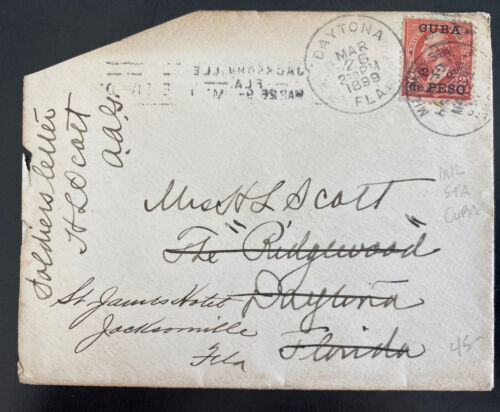 DAYTONA
MAR
26
1899
FLA.
JACKSONVILLE
FLA.
CUBA
de PESO.
Soldiers letter
H L Scott
A.A.G.
Mrs H L Scott
The "Ridgewood"
Daytona
Florida
St. James Hotel
Jacksonville
Fla
MIL
STA
CUBA
45-